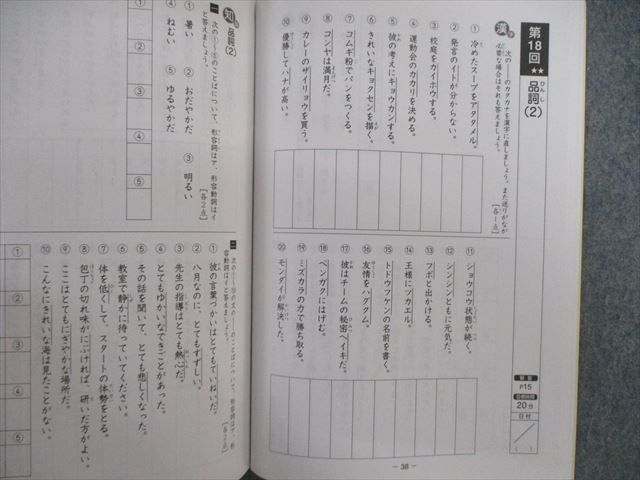 第18回
★★
品詞(2)
ひんし
解答
P15
目標時間
20分
日付
／
( )
漢字
次の――のカタカナを漢字に直しましょう。また送りがなが
必要な場合はそれも答えましょう。
[各1点]
① 冷めたスープをアタタメル。
② 発言のイトが分からない。
③ 校庭をカイホウする。
④ 運動会のカカリを決める。
⑤ 彼の考えにキョウカンする。
⑥ きれいなキョクセンを描く。
⑦ コムギ粉でパンをつくる。
⑧ コンヤは満月だ。
⑨ カレーのザイリョウを買う。
⑩ 優勝してハナが高い。
⑪ ショウコウ状態が続く。
⑫ シンシンともに元気だ。
⑬ フボと出かける。
⑭ 王様にツカエル。
⑮ トドウフケンの名前を書く。
⑯ 友情をハグクム。
⑰ 彼はチームの秘密ヘイキだ。
⑱ ベンガクにはげむ。
⑲ ミズカラの力で勝ち取る。
⑳ モンダイが解決した。
― 38 ―
知識
品詞(2)
一 次の①～⑤のことばについて、形容詞はア、形容動詞はイ
と答えましょう。
[各2点]
① 暑い
② おだやかだ
③ 明るい
④ ねむい
⑤ ゆるやかだ
①
②
③
④
⑤
二
① 彼の言葉づかいはとてもていねいだ。
② 八月なのに、とてもすずしい。
③ 先生の指導はとても熱心だ。
④ とてもゆかいなできごとがあった。
⑤ その話を聞いて、とても悲しくなった。
⑥ 教室で静かに待っていてください。
⑦ 体を低くして、スタートの体勢をとる。
⑧ 包丁の切れ味がにぶければ、研いだ方がよい。
⑨ ここはとてもにぎやかな場所だ。
⑩ こんなにきれいな海は見たことがない。
①
②
③
④
⑤